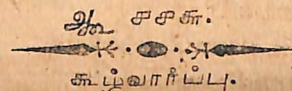 சசசு.
கூழ்வார்ப்பு.